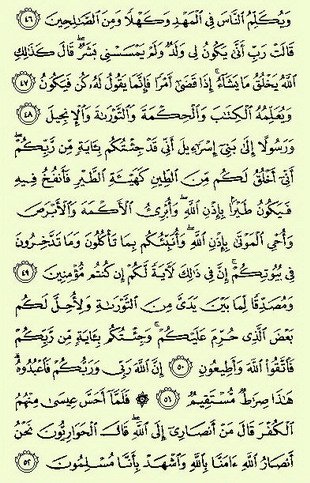 وَيُكَلِّمُ ٱلنَّاسَ فِى ٱلْمَهْدِ وَكَهْلًا وَمِنَ ٱلصَّٰلِحِينَ ٤٦
قَالَتْ رَبِّ أَنَّىٰ يَكُونُ لِى وَلَدٌ وَلَمْ يَمْسَسْنِى بَشَرٌ ۖ قَالَ كَذَٰلِكِ
ٱللَّهُ يَخْلُقُ مَا يَشَآءُ ۚ إِذَا قَضَىٰٓ أَمْرًا فَإِنَّمَا يَقُولُ لَهُۥ كُن فَيَكُونُ ٤٧
وَيُعَلِّمُهُ ٱلْكِتَٰبَ وَٱلْحِكْمَةَ وَٱلتَّوْرَىٰةَ وَٱلْإِنجِيلَ ٤٨
وَرَسُولًا إِلَىٰ بَنِىٓ إِسْرَٰٓءِيلَ أَنِّى قَدْ جِئْتُكُم بِـَٔايَةٍ مِّن رَّبِّكُمْ ۖ
أَنِّىٓ أَخْلُقُ لَكُم مِّنَ ٱلطِّينِ كَهَيْـَٔةِ ٱلطَّيْرِ فَأَنفُخُ فِيهِ
فَيَكُونُ طَيْرًۢا بِإِذْنِ ٱللَّهِ ۖ وَأُبْرِئُ ٱلْأَكْمَهَ وَٱلْأَبْرَصَ
وَأُحْىِ ٱلْمَوْتَىٰ بِإِذْنِ ٱللَّهِ ۖ وَأُنَبِّئُكُم بِمَا تَأْكُلُونَ وَمَا تَدَّخِرُونَ
فِى بُيُوتِكُمْ ۚ إِنَّ فِى ذَٰلِكَ لَـَٔايَةً لَّكُمْ إِن كُنتُم مُّؤْمِنِينَ ٤٩
وَمُصَدِّقًا لِّمَا بَيْنَ يَدَىَّ مِنَ ٱلتَّوْرَىٰةِ وَلِأُحِلَّ لَكُم
بَعْضَ ٱلَّذِى حُرِّمَ عَلَيْكُمْ ۚ وَجِئْتُكُم بِـَٔايَةٍ مِّن رَّبِّكُمْ
فَٱتَّقُوا۟ ٱللَّهَ وَأَطِيعُونِ ٥٠ إِنَّ ٱللَّهَ رَبِّى وَرَبُّكُمْ فَٱعْبُدُوهُ ۗ
هَٰذَا صِرَٰطٌ مُّسْتَقِيمٌ ٥١ ۞ فَلَمَّآ أَحَسَّ عِيسَىٰ مِنْهُمُ
ٱلْكُفْرَ قَالَ مَنْ أَنصَارِىٓ إِلَى ٱللَّهِ ۖ قَالَ ٱلْحَوَارِيُّونَ نَحْنُ
أَنصَارُ ٱللَّهِ ءَامَنَّا بِٱللَّهِ وَٱشْهَدْ بِأَنَّا مُسْلِمُونَ ٥٢